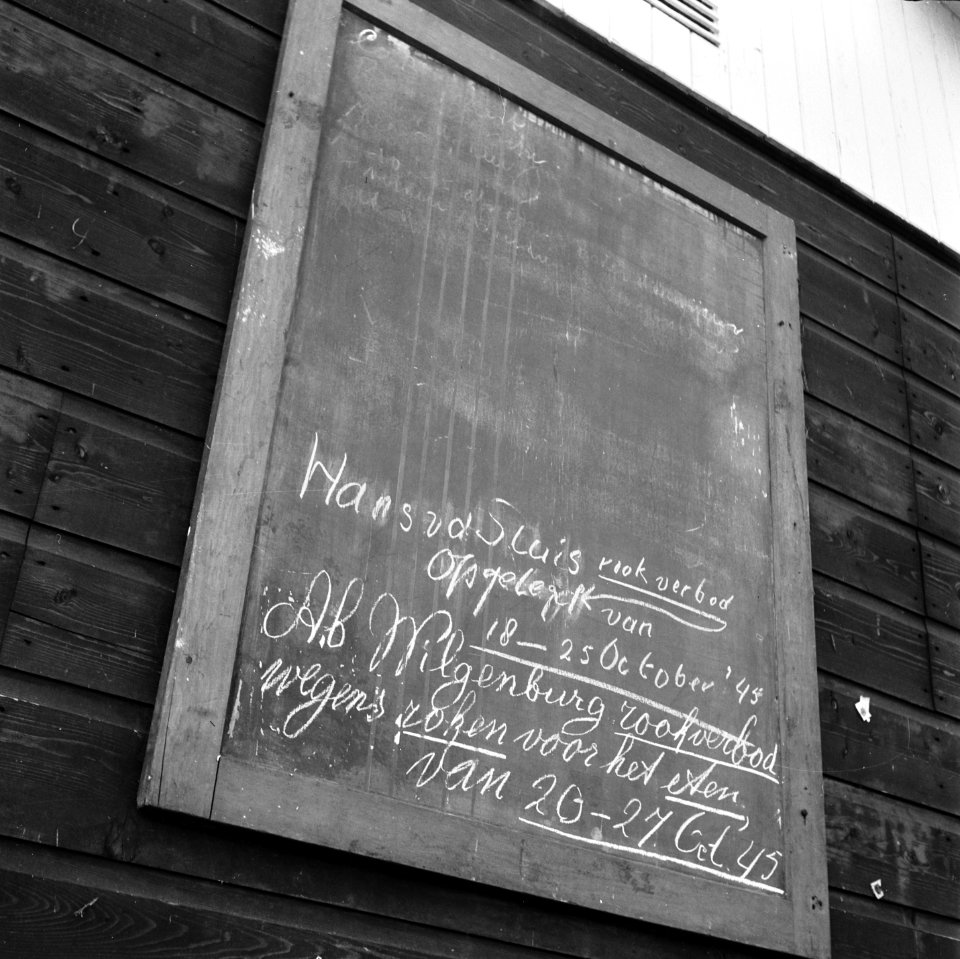 Hans vd Sluis rookverbod
Opgelegt van
18 – 25 October '45
Ab Wilgenburg rookverbod
wegens roken voor het eten
van 20 – 27. Oct. 45